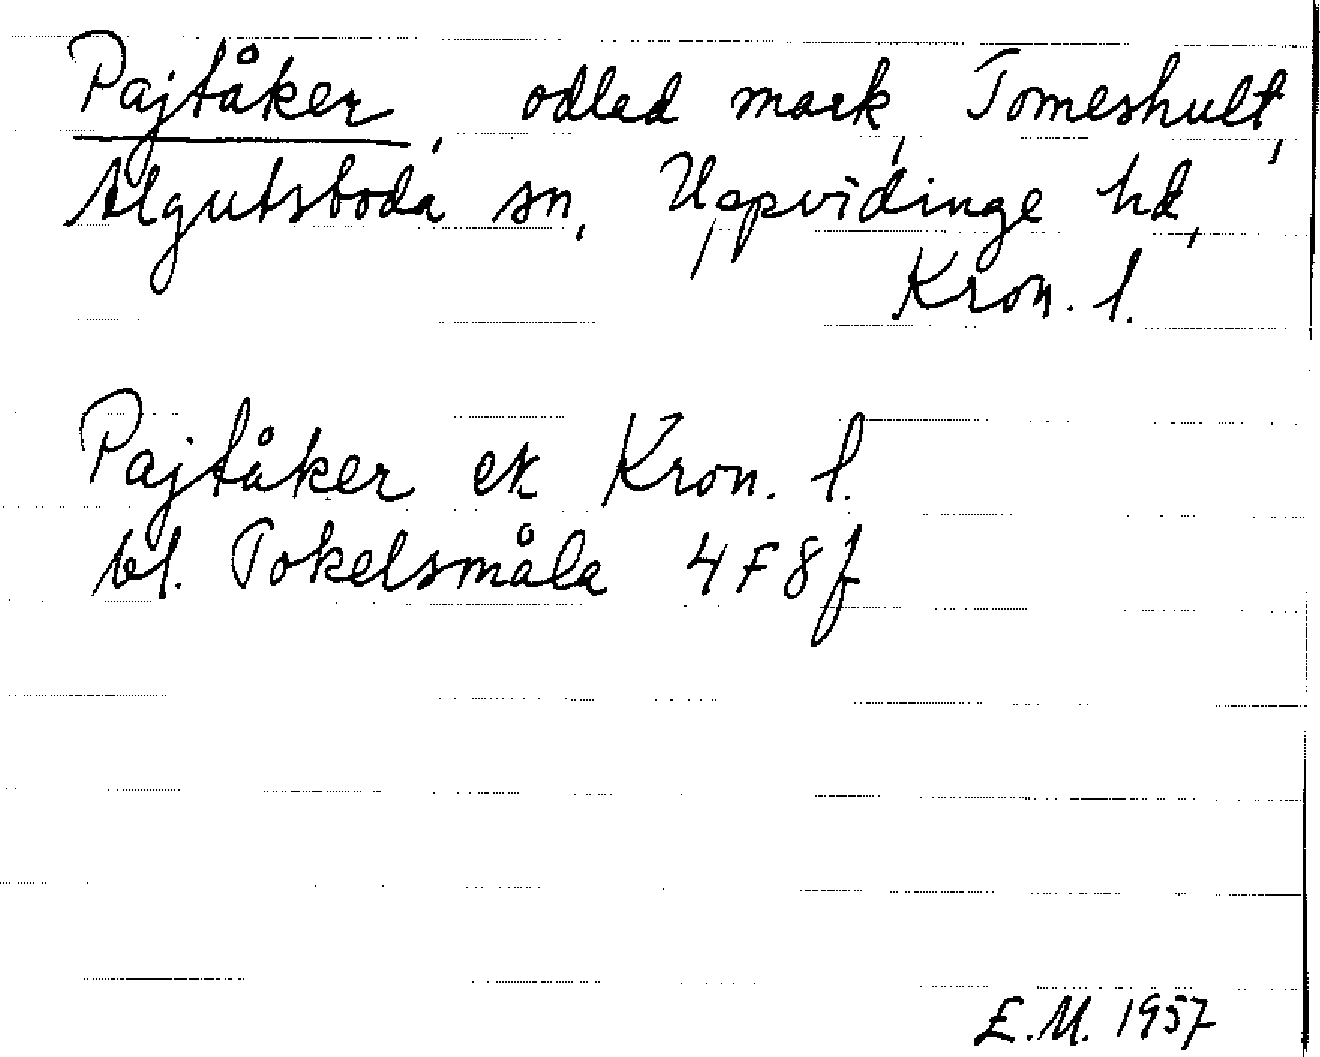 Pajtåker, odlad mark, Tomeshult,
Algutsboda sn, Uppvidinge hd,
Kron. l.
Pajtåker ek Kron. l.
bl. Tokelsmåla 4F8f
E.M. 1957